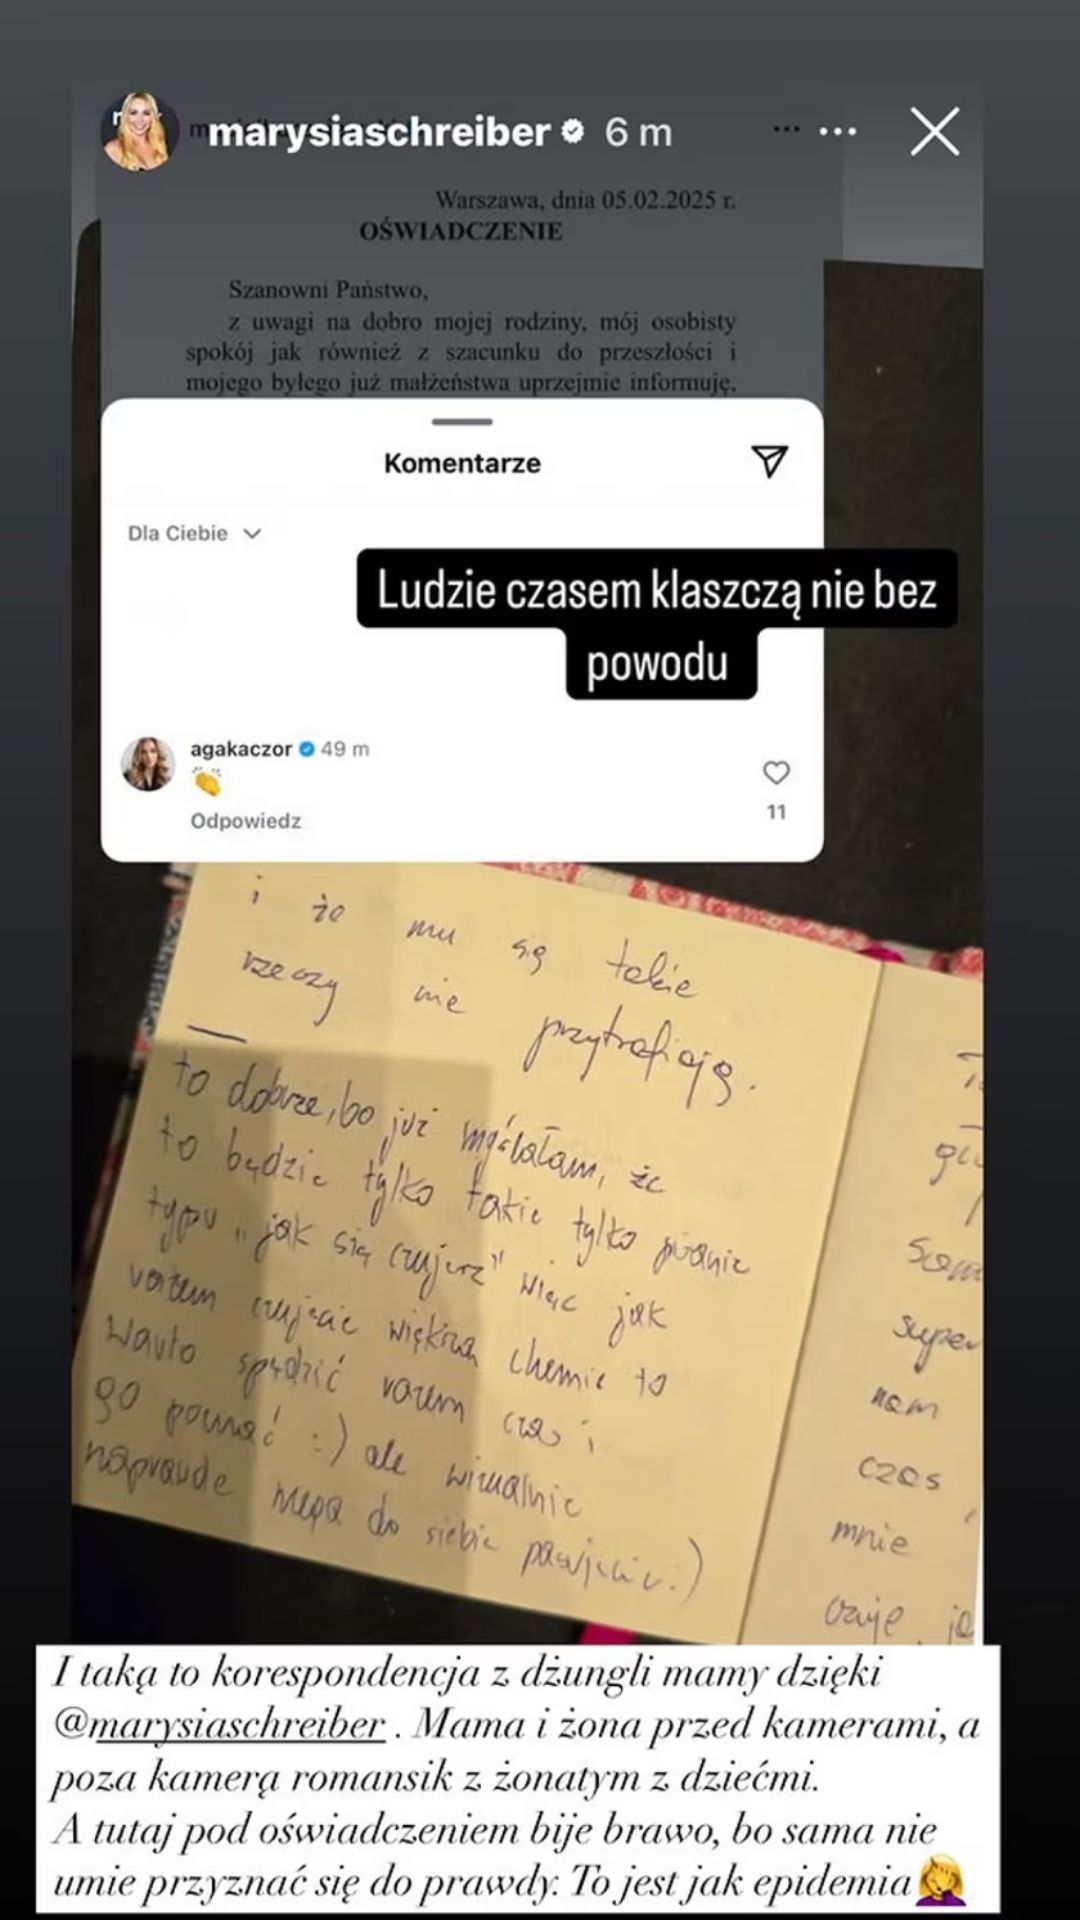 marysiaschreiber 6 m
Warszawa, dnia 05.02.2025 r.
OŚWIADCZENIE
Szanowni Państwo,
z uwagi na dobro mojej rodziny, mój osobisty
spokój jak również z szacunku do przeszłości i
mojego byłego już małżeństwa uprzejmie informuję,
Komentarze
Dla Ciebie
Ludzie czasem klaszczą nie bez
powodu
agakaczor 49 m
👏
Odpowiedz
11
i że mu się takie
rzeczy nie przytrafiają.
to dobrze, bo już myślałam, że
to będzie tylko takie tylko pytanie
typu „jak się czujesz" więc jak
razem czujecie większą chemię to
warto spędzić razem czas i
go poznać :) ale wizualnie
naprawdę mega do siebie pasujecie :)
super
nam
czas
mnie
czuje
I taką to korespondencja z dżungli mamy dzięki
@marysiaschreiber . Mama i żona przed kamerami, a
poza kamerą romansik z żonatym z dziećmi.
A tutaj pod oświadczeniem bije brawo, bo sama nie
umie przyznać się do prawdy. To jest jak epidemia🤦‍♀️